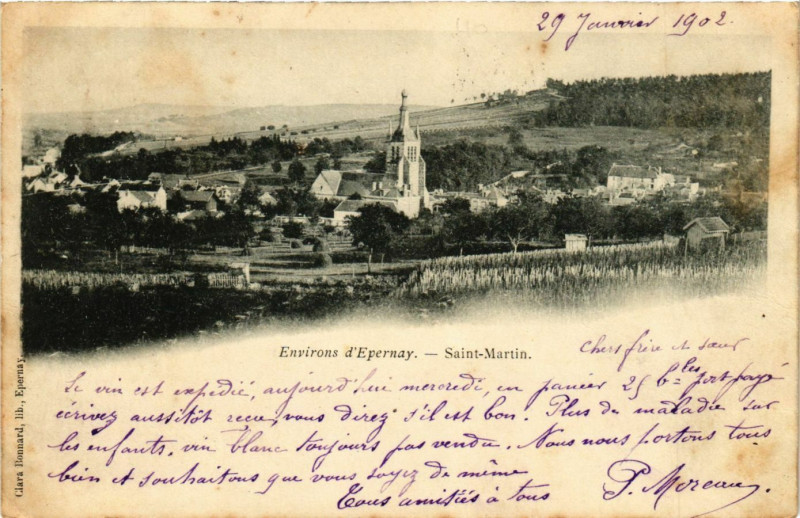 29 Janvier 1902.
Environs d'Epernay. — Saint-Martin.
Chers frère et sœur
Le vin est expédié, aujourd'hui mercredi, en panier 25 b^lles port payé
écrivez aussitôt recu, vous direz s'il est bon. Plus de maladie sur
les enfants, vin blanc toujours pas vendu. Nous nous portons tous
bien et souhaitons que vous soyez de même
Tous amitiés à tous P. Moreau.
Clara Bonnard, lib., Epernay